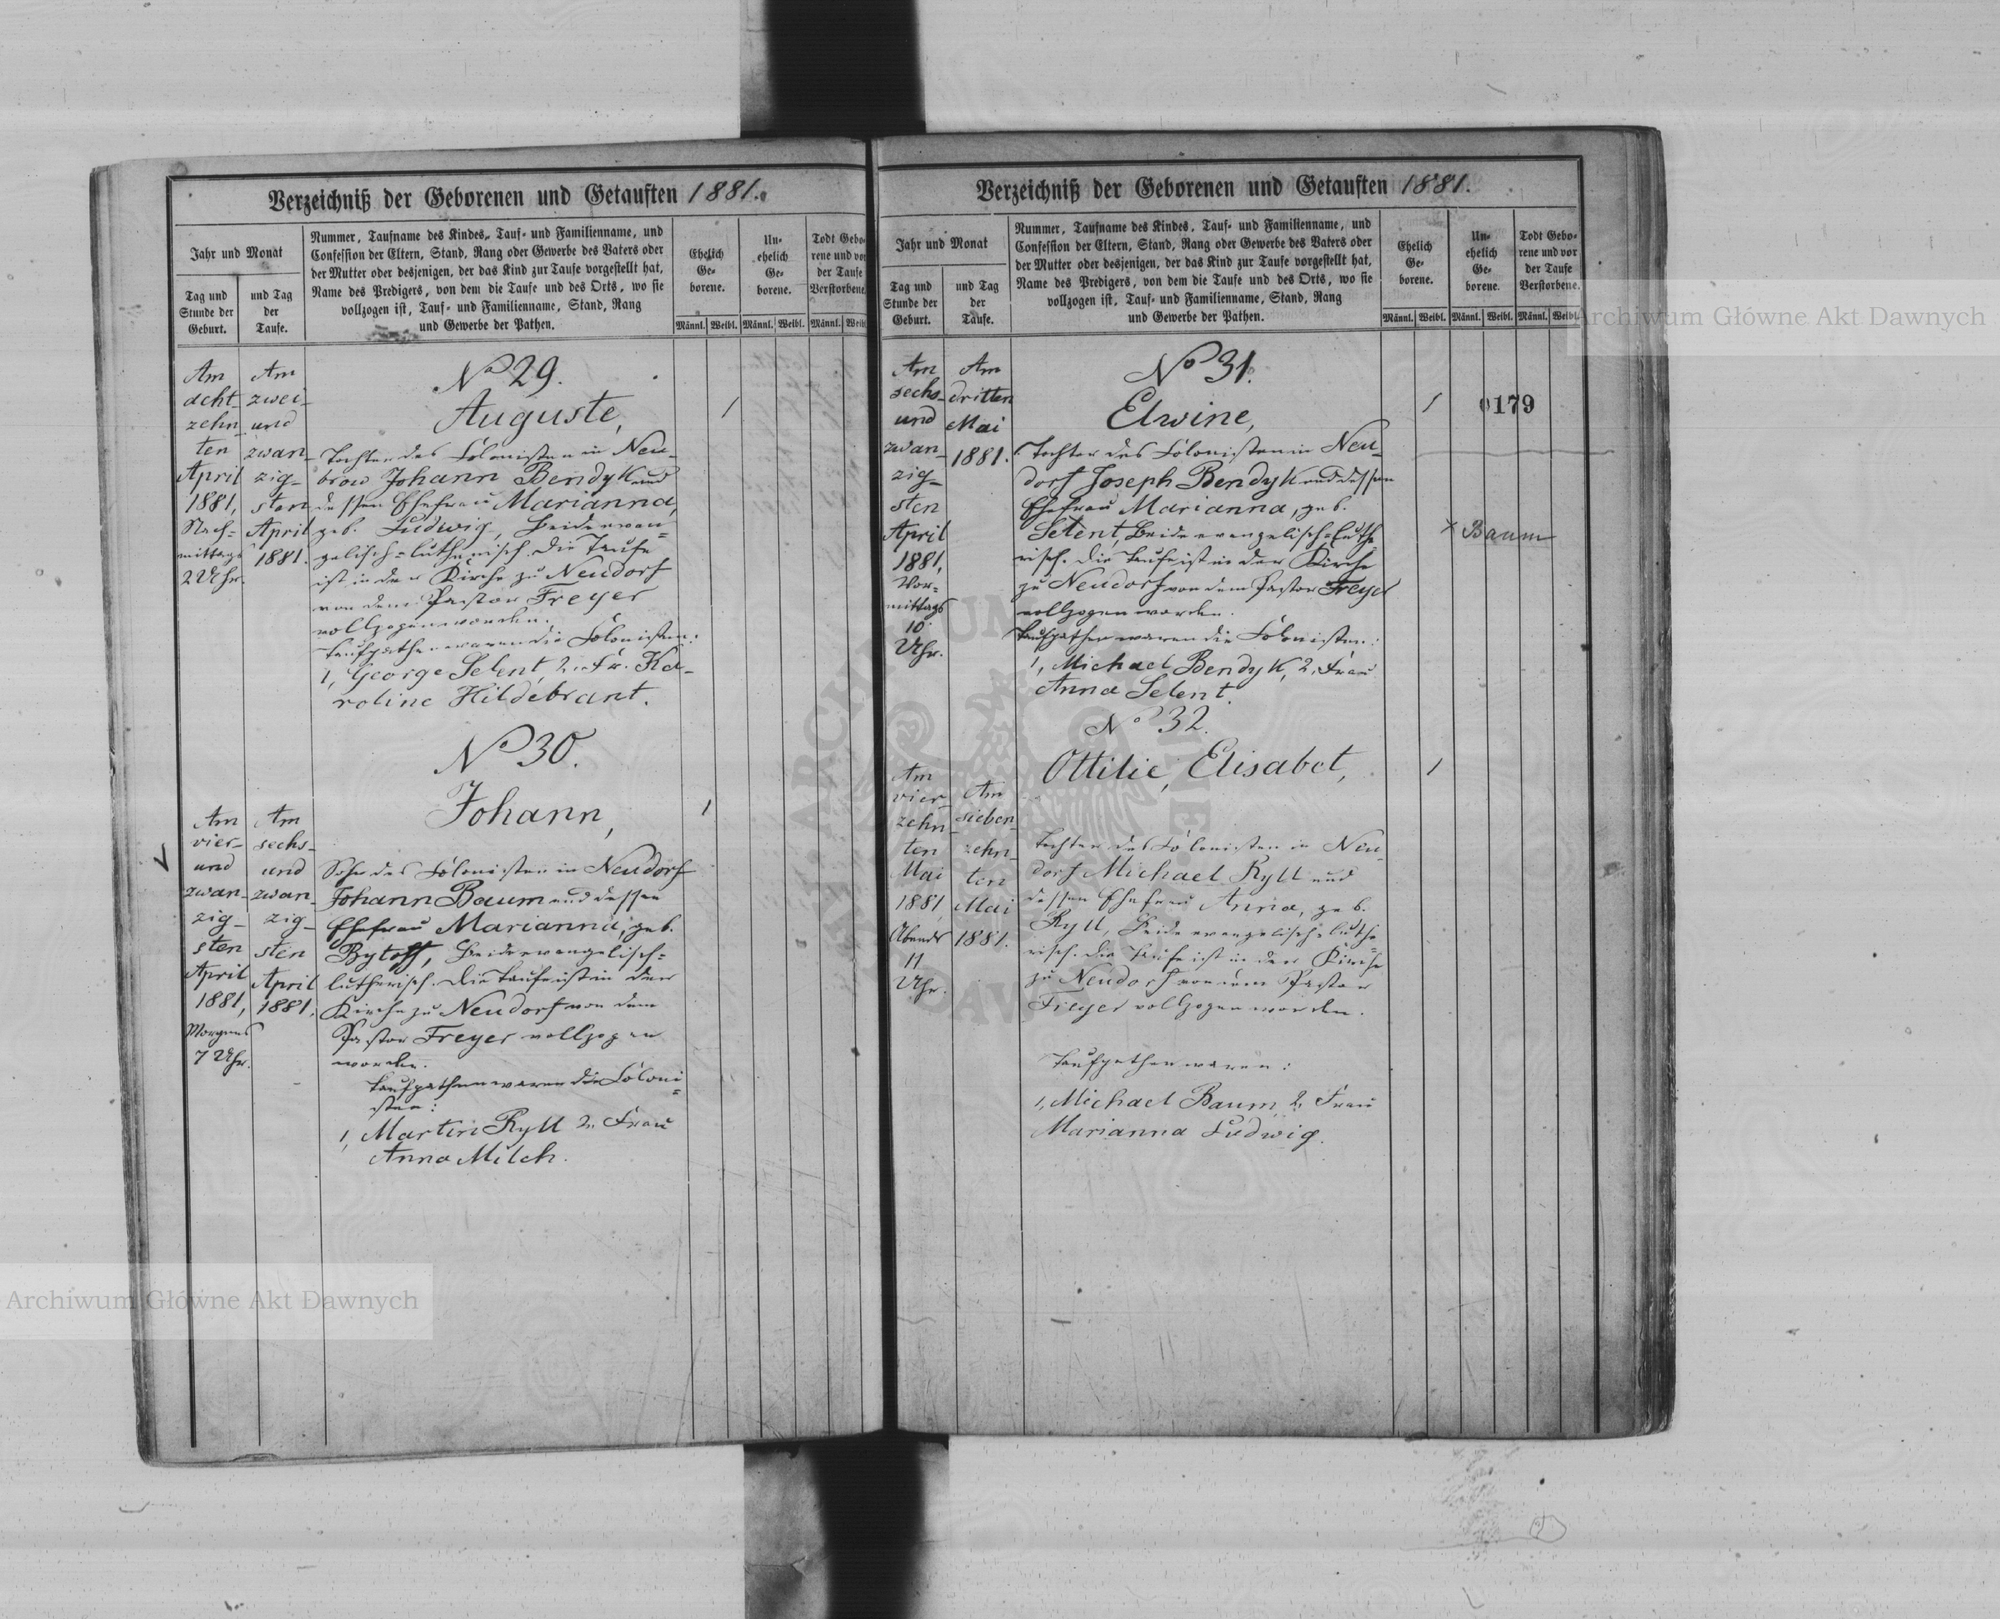 Verzeichniß der Geborenen und Getauften 1881.
Jahr und Monat
Tag und
Stunde der
Geburt.
und Tag
der
Taufe.
Nummer, Taufname des Kindes, Tauf- und Familienname, und
Confession der Eltern, Stand, Rang oder Gewerbe des Vaters oder
der Mutter oder desjenigen, der das Kind zur Taufe vorgestellt hat,
Name des Predigers, von dem die Taufe und des Orts, wo sie
vollzogen ist, Tauf- und Familienname, Stand, Rang
und Gewerbe der Pathen.
Ehelich
Ge-
borene.
Un-
ehelich
Ge-
borene.
Todt Gebo-
rene und vor
der Taufe
Verstorbene.
Männl. Weibl. Männl. Weibl. Männl. Weibl.
Am
acht-
zehn-
ten
April
1881,
Nach-
mittags
2 Uhr.
Am
zwei-
und
zwan-
zig-
sten
April
1881.
No 29.
Auguste,
Tochter des Colonisten in Neu-
brow Johann Bendyk und
dessen Ehefrau Marianna,
geb. Ludwig, Beide evan-
gelisch-lutherisch. Die Taufe
ist in der Kirche zu Neudorf
von dem Pastor Freyer
vollzogen worden.
Taufpathen waren die Colonisten:
1, George Selent, 2. Fr. Ka-
roline Hildebrant.
1
No 30.
Johann,
1
Am
vier-
und
zwan-
zig-
sten
April
1881,
Morgens
7 Uhr.
Am
sechs-
und
zwan-
zig-
sten
April
1881,
Sohn des Colonisten in Neudorf
Johann Baum und dessen
Ehefrau Marianna, geb.
Bytoff, Beide evangelisch-
lutherisch. Die Taufe ist in der
Kirche zu Neudorf von dem
Pastor Freyer vollzogen
worden.
Taufpathen waren die Coloni-
sten:
1, Martin Ryll 2. Frau
Anna Milch.
Verzeichniß der Geborenen und Getauften 1881.
Jahr und Monat
Tag und
Stunde der
Geburt.
und Tag
der
Taufe.
Nummer, Taufname des Kindes, Tauf- und Familienname, und
Confession der Eltern, Stand, Rang oder Gewerbe des Vaters oder
der Mutter oder desjenigen, der das Kind zur Taufe vorgestellt hat,
Name des Predigers, von dem die Taufe und des Orts, wo sie
vollzogen ist, Tauf- und Familienname, Stand, Rang
und Gewerbe der Pathen.
Ehelich
Ge-
borene.
Un-
ehelich
Ge-
borene.
Todt Gebo-
rene und vor
der Taufe
Verstorbene.
Männl. Weibl. Männl. Weibl. Männl. Weibl.
Am
sechs-
und
zwan-
zig-
sten
April
1881,
Vor-
mittags
10
Uhr.
Am
dritten
Mai
1881.
No 31.
Elwine,
Tochter des Colonisten in Neu-
dorf Joseph Bendyk und dessen
Ehefrau Marianna, geb.
Selent, Beide evangelisch-luthe-
risch. Die Taufe ist in der Kirche
zu Neudorf von dem Pastor Freyer
vollzogen worden.
Taufpathen waren die Colonisten:
1, Michael Bendyk, 2, Frau
Anna Selent.
1
0179
× Baum
No 32.
Ottilie, Elisabet,
1
Am
vier-
zehn-
ten
Mai
1881
Abends
11
Uhr.
Am
sieben-
zehn-
ten
Mai
1881.
Tochter des Colonisten in Neu-
dorf Michael Ryll und
dessen Ehefrau Anna, geb.
Ryll, Beide evangelisch-luthe-
risch. Die Taufe ist in der Kirche
zu Neudorf von dem Pastor
Freyer vollzogen worden.
Taufpathen waren:
1, Michael Baum 2, Frau
Marianna Ludwig.
Archiwum Główne Akt Dawnych
Archiwum Główne Akt Dawnych